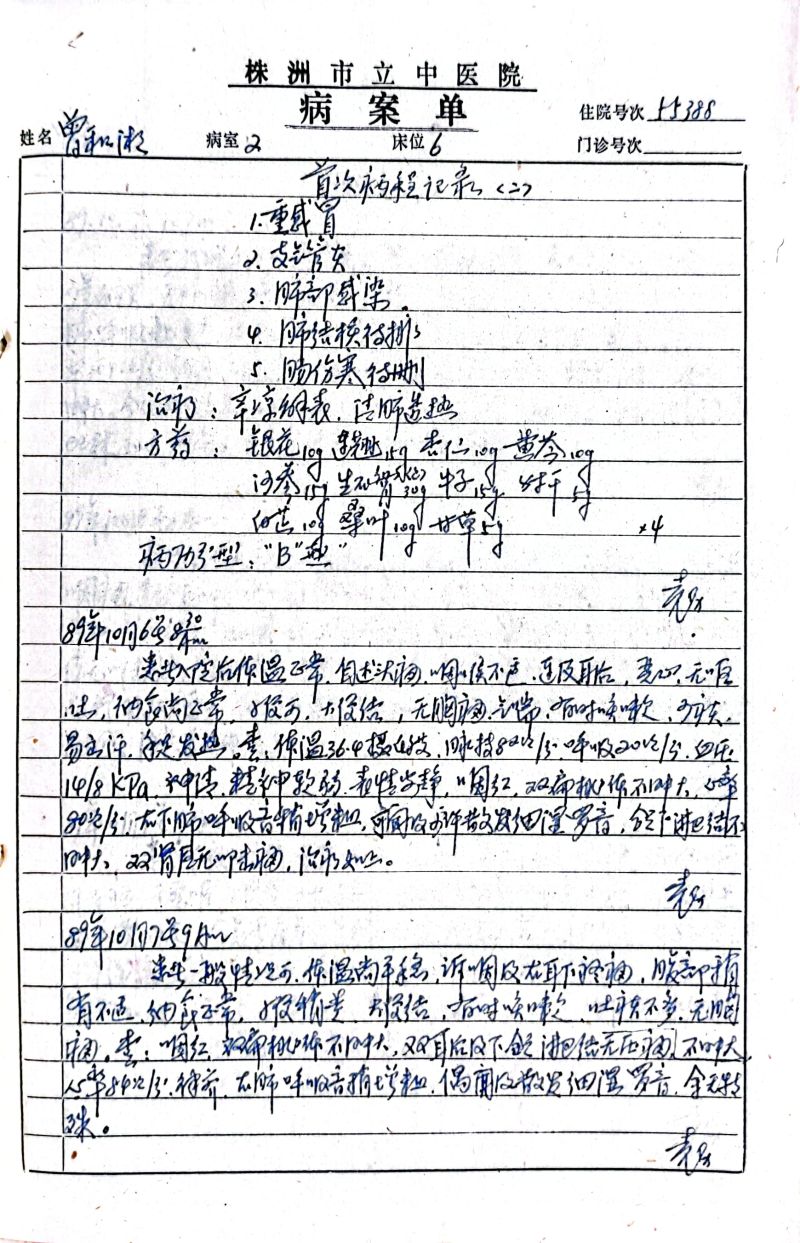 株洲市立中医院
病案单
住院号次 55388
姓名 曾和湘 病室 2 床位 6 门诊号次
首次病程记录（二）
1. 重感冒
2. 支气管炎
3. 肺部感染
4. 肺结核待排
5. 肠伤寒待删
治则：辛凉解表，清肺透热
方药：银花10g 连翘15g 杏仁10g 黄芩10g
沙参15g 生石膏30g 牛子15g 桔梗5g
10g 桑叶10g 甘草5g ×4
病历分型："B"型
袁
89年10月6号8 30 Am
患者入院后体温正常，自述头痛，咽喉不适，连及耳后，恶心，无呕
吐，纳食尚正常，小便可，大便结，无胸痛、气喘，有时咳嗽，
易出汗，发热。查：体温36.4摄氏度，脉搏80次/分 呼吸20次/分，血压
14/8 KPa，神清，精神软弱，表情安静，咽红，双扁桃体不肿大，心率
80次/分，右下肺呼吸音稍增粗，可闻及散发细湿罗音，颌下淋巴结不
肿大，双肾区无叩击痛，治疗如上。
袁
89年10月7号9Am
患者一般情况可，体温尚平稳，诉咽及右耳下疼痛，腹部稍
有不适，纳食正常，小便稍黄，大便结，有时咳嗽，吐痰不多，无胸
痛，查：咽红，双扁桃体不肿大，双耳后及下颌淋巴结无压痛，不肿大
心率84次/分，律齐，右肺呼吸音稍增粗，偶闻及散发细湿罗音，余无特
殊。
袁